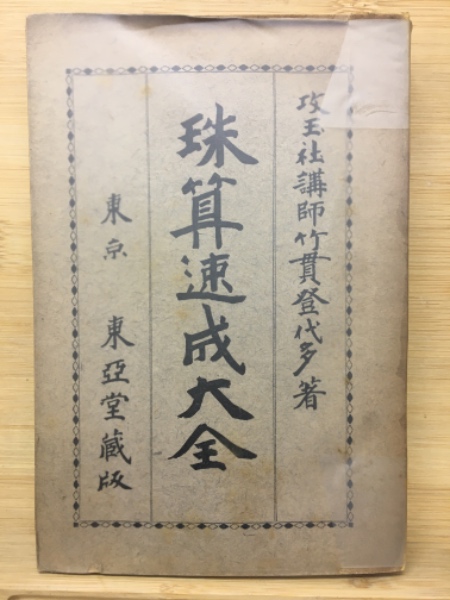 攻玉社講師竹貫登代多著
珠算速成大全
東京 東亞堂蔵版